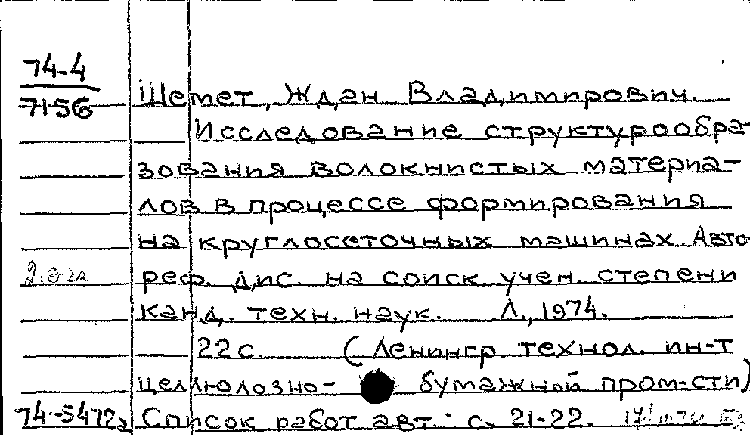 74-4
7156
Шемет, Ждан Владимирович.
Исследование структурообра-
зования волокнистых материа-
лов в процессе формирования
на круглосеточных машинах. Авто-
реф. дис. на соиск. учен. степени
канд. техн. наук. Л., 1974.
22 с. (Ленингр. технол. ин-т
целлюлозно-бумажной пром-сти)
74-5472 Список работ авт.: с. 21-22.